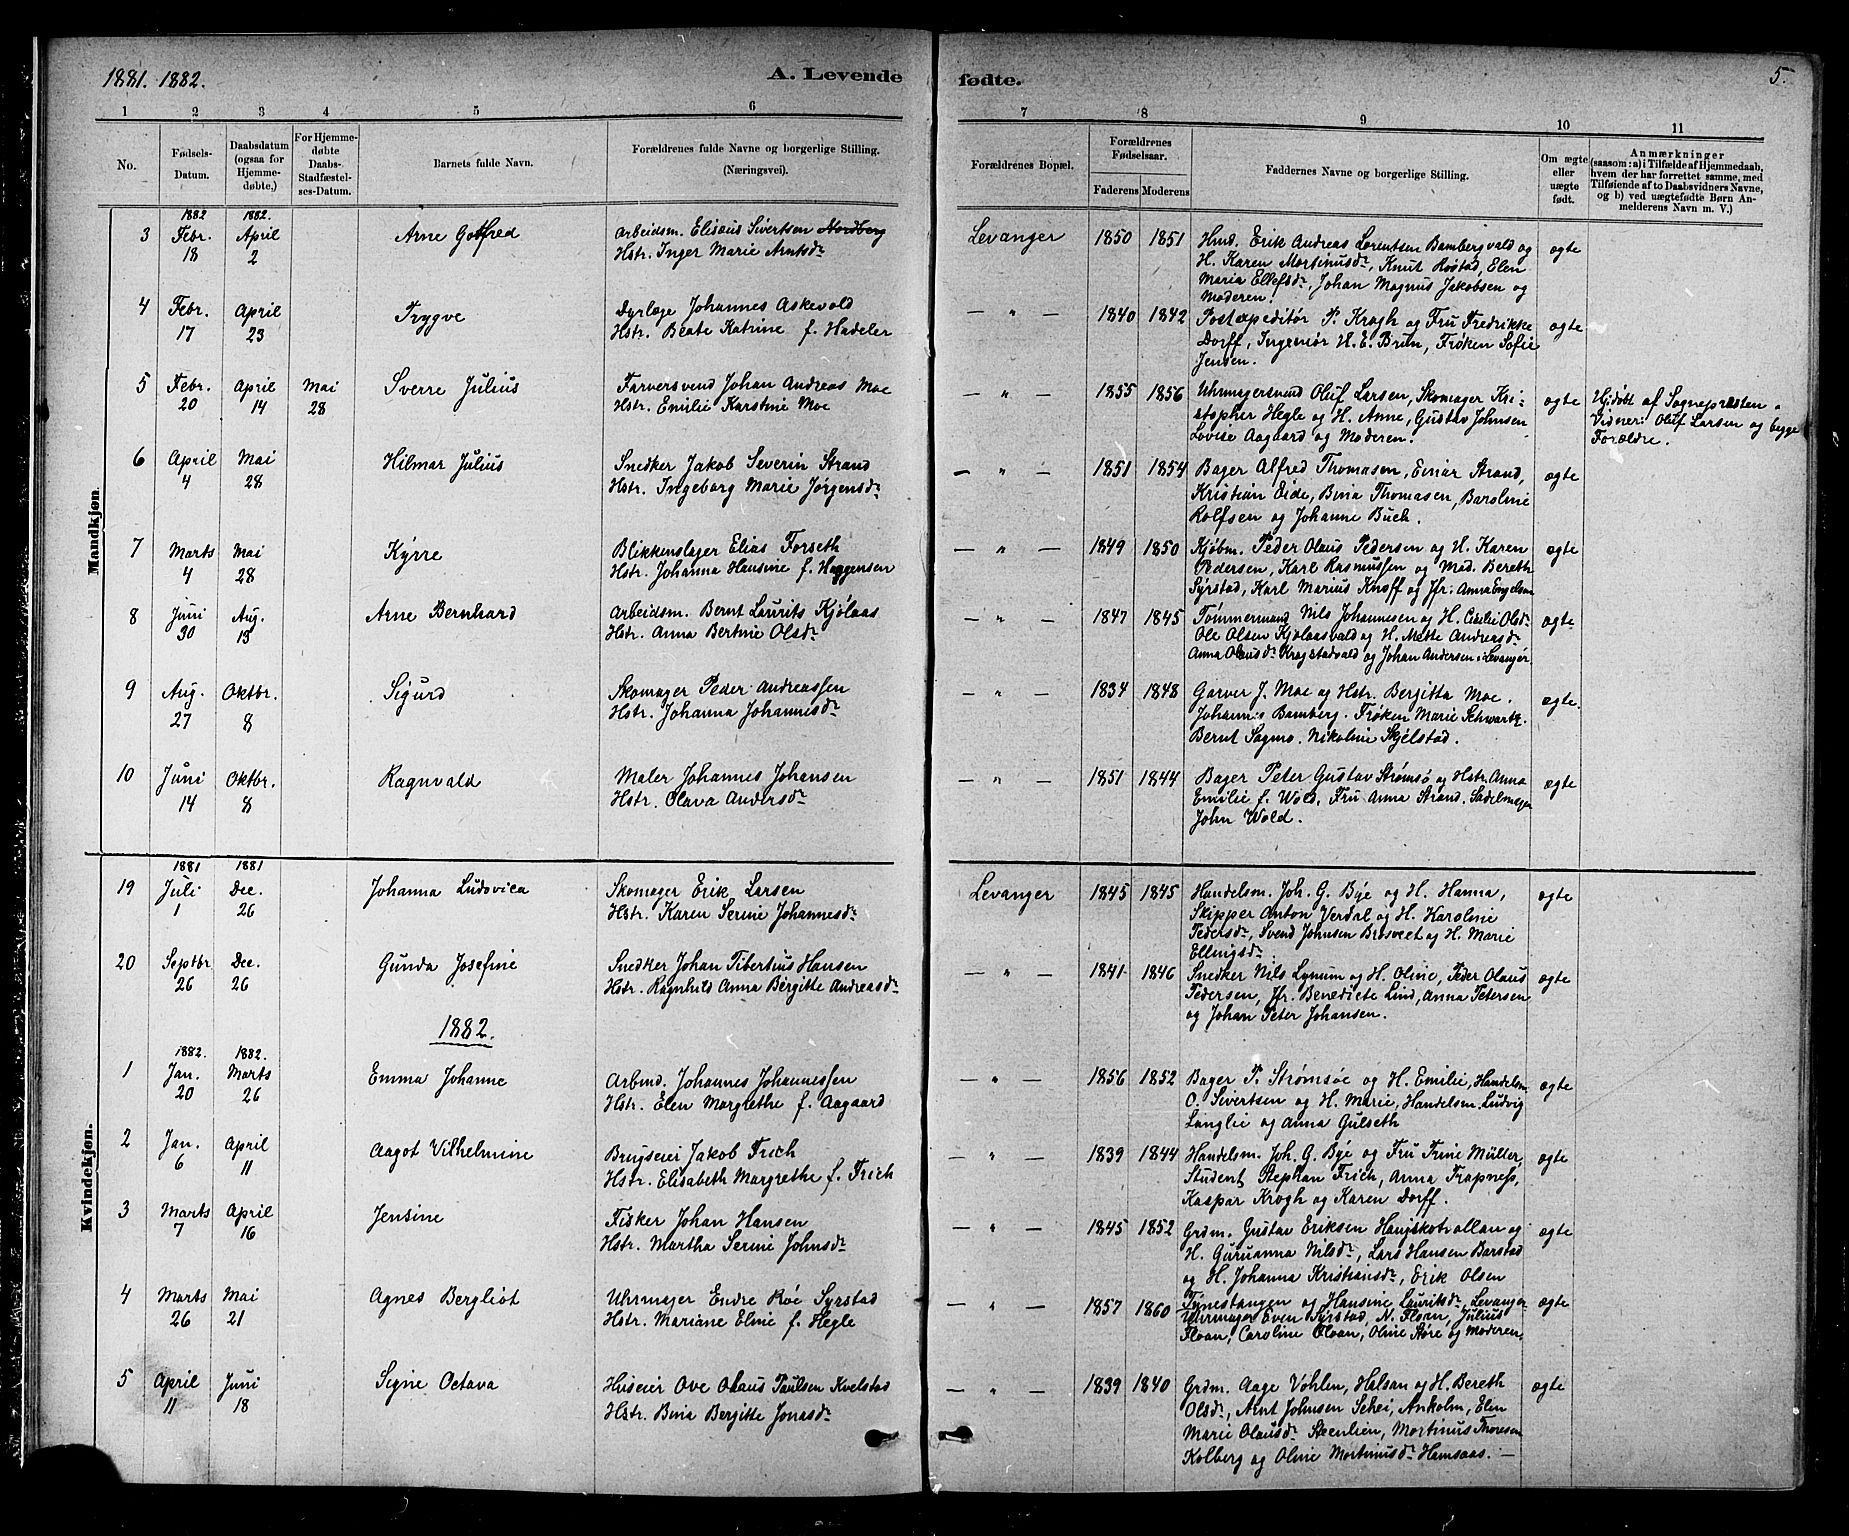 1881. 1882.
A. Levende fødte.
5.
1 2 3 4 5 6 7 8 9 10 11
No.
Fødsels-Datum.
Daabsdatum (ogsaa for Hjemme-døbte,)
For Hjemme-døbte Daabs-Stadfæstel-ses-Datum.
Barnets fulde Navn.
Forældrenes fulde Navne og borgerlige Stilling. (Næringsvei).
Forældrenes Bopæl.
Forældrenes Fødselsaar.
Faderens Moderens
Faddernes Navne og borgerlige Stilling.
Om ægte eller uægte født.
Anmærkninger
(saasom: a) i Tilfælde af Hjemmedaab,
hvem der har forrettet samme, med
Tilføiende af to Daabsvidners Navne,
og b) ved uægtefødte Børn An-
melderens Navn m. V.)
Mandkjøn.
1882 1882.
3 Febr. 18 April 2 Arne Gotfred
Arbeidsm. Elisæus Sivertsen Nordberg
Hstr. Inger Marie Arntsdr
Levanger 1850 1851
Hmd. Erik Andreas Lorentsen Bambergvald og
H. Karen Mortinusdr, Knut Røstad, Elen
Maria Ellefsdr, Johan Magnus Jakobsen og
Moderen.
ægte
4 Febr. 17 April 23 Trygve
Dyrlæge Johannes Askevold
Hstr. Beate Katrine f. Hadeler
— " — 1840 1842
Postexpeditør P. Krogh og Fru Fredrikke
Dorff, Ingeniør H. E. Brun, Frøken Sofie
Jensen.
ægte
5 Febr. 20 April 14 Mai 28 Sverre Julius
Farversvend Johan Andreas Moe
Hstr. Emilie Karstine Moe
— " — 1855 1856
Uhrmagersvend Oluf Larsen, Skomager Kri-
stopher Hegle og H. Anne, Gustav Johnsen
Lovise Aagaard og Moderen.
ægte
Hjdøbt af Sognepræsten.
Vidner: Oluf Larsen og begge
Forældre.
6 April 4 Mai 28 Hilmar Julius
Snedker Jakob Severin Strand
Hstr. Ingeborg Marie Jørgensdr
— " — 1851 1854
Bager Alfred Thomasen, Einar Strand,
Kristian Eide, Bina Thomasen, Baroline
Rolfsen og Johanne Buch.
ægte
7 Marts 4 Mai 28 Kyrre
Blikkenslager Elias Forseth
Hstr. Johanna Hansine f. Haggensen
— " — 1849 1850
Kjøbm. Peder Olaus Pedersen og H. Karen
Pedersen, Karl Rasmussen og Mad. Bereth
Syrstad, Karl Marius Knoff og Jfr. Anna Engelsen
ægte
8 Juni 30 Aug. 13 Arne Bernhard
Arbeidsm. Bernt Laurits Kjølaas
Hstr. Anna Bertine Olsdr
— " — 1847 1845
Tømmermand Nils Johannesen og H. Cecilie Olsdr
Ole Olsen Kjølaasvald og H. Mette Andreasdr
Anna Olausdr Krogstadvald og Johan Andersen, Levanger
ægte
9 Aug. 27 Oktbr. 8 Sigurd
Skomager Peder Andreassen
Hstr. Johanna Johannesdr
— " — 1834 1848
Garver J. Moe og Hstr. Bergitta Moe.
Johannes Bamberg. Frøken Marie Schwartz.
Bernt Sagmo. Nikoline Skjelstad.
ægte.
10 Juni 14 Oktbr. 8 Ragnvald
Maler Johannes Johansen
Hstr. Olava Andersdr
— " — 1851 1844
Bager Peter Gustav Strømsø og Hstr. Anna
Emilie f. Wold, Fru Anna Strand, Sadelmager
John Wold.
ægte
Kvindekjøn.
1881 1881
19 Juli 1 Dec. 26 Johanna Ludovica
Skomager Erik Larsen
Hstr. Karen Serine Johannesdr
Levanger 1845 1845
Handelsm. Joh. G. Bye og H. Hanna,
Skipper Anton Verdal og H. Karoline
Pedersdr, Svend Johnsen Brusveet og H. Marie
Ellingsdr.
ægte
20 Septbr 26 Dec. 26 Gunda Josefine
Snedker Johan Tibertius Hansen
Hstr. Ragnhild Anna Bergitte Andreasdr
— " — 1841 1846
Snedker Nils Lynum og H. Oline, Peder Olaus
Pedersen, Jfr. Benedicte Lind, Anna Petersen
og Johan Peter Johansen.
ægte
1882.
1882. 1882.
1 Jan. 20 Marts 26 Emma Johanne
Arbmd. Johannes Johannessen
Hstr. Elen Margrethe f. Aagaard
— " — 1856 1852
Bager P. Strømsøe og H. Emilie, Handelsm.
C. Sivertsen og H. Marie, Handelsm. Ludvig
Langlie og Anna Gulseth
ægte
2 Jan. 6 April 11 Aagot Vilhelmine
Brugseier Jakob Frich
Hstr. Elisabeth Margrethe f. Frich
— " — 1839 1844
Handelsm. Joh. G. Bye og Fru Trine Müller,
Student Stephan Frich, Anna Trapness,
Kaspar Krogh og Karen Dorff.
ægte
3 Marts 7 April 16 Jensine
Fisker Johan Hansen
Hstr. Martha Serine Johnsdr
— " — 1845 1852
Grdm. Gustav Eriksen Haugskotrallan og
H. Guruanna Nilsdr, Lars Hansen Barstad
og H. Johanna Kristiansdr, Erik Olsen
Tynestangen og Hansine Lauritsdr, Levanger
ægte
4 Marts 26 Mai 21 Agnes Bergliot
Uhrmager Endre Røe Syrstad
Hstr. Mariane Eline f. Hegle
— " — 1857 1860
Uhrmager Even Syrstad, N. Floan, Julius
Floan, Caroline Floan, Oline Støre og Moderen.
ægte
5 April 11 Juni 18 Signe Octava
Huseier Ove Olaus Paulsen Kvelstad
Hstr. Bina Bergitte Jonasdr
— " — 1839 1840
Grdm. Aage Vohlen, Halsan og H. Bereth
Olsdr, Arnt Johnsen Schei, Ankolm, Elen
Marie Olausdr Steenlien, Mortinus Thoresen
Kolberg og Oline Mortinusdr Hamsaas. —
ægte